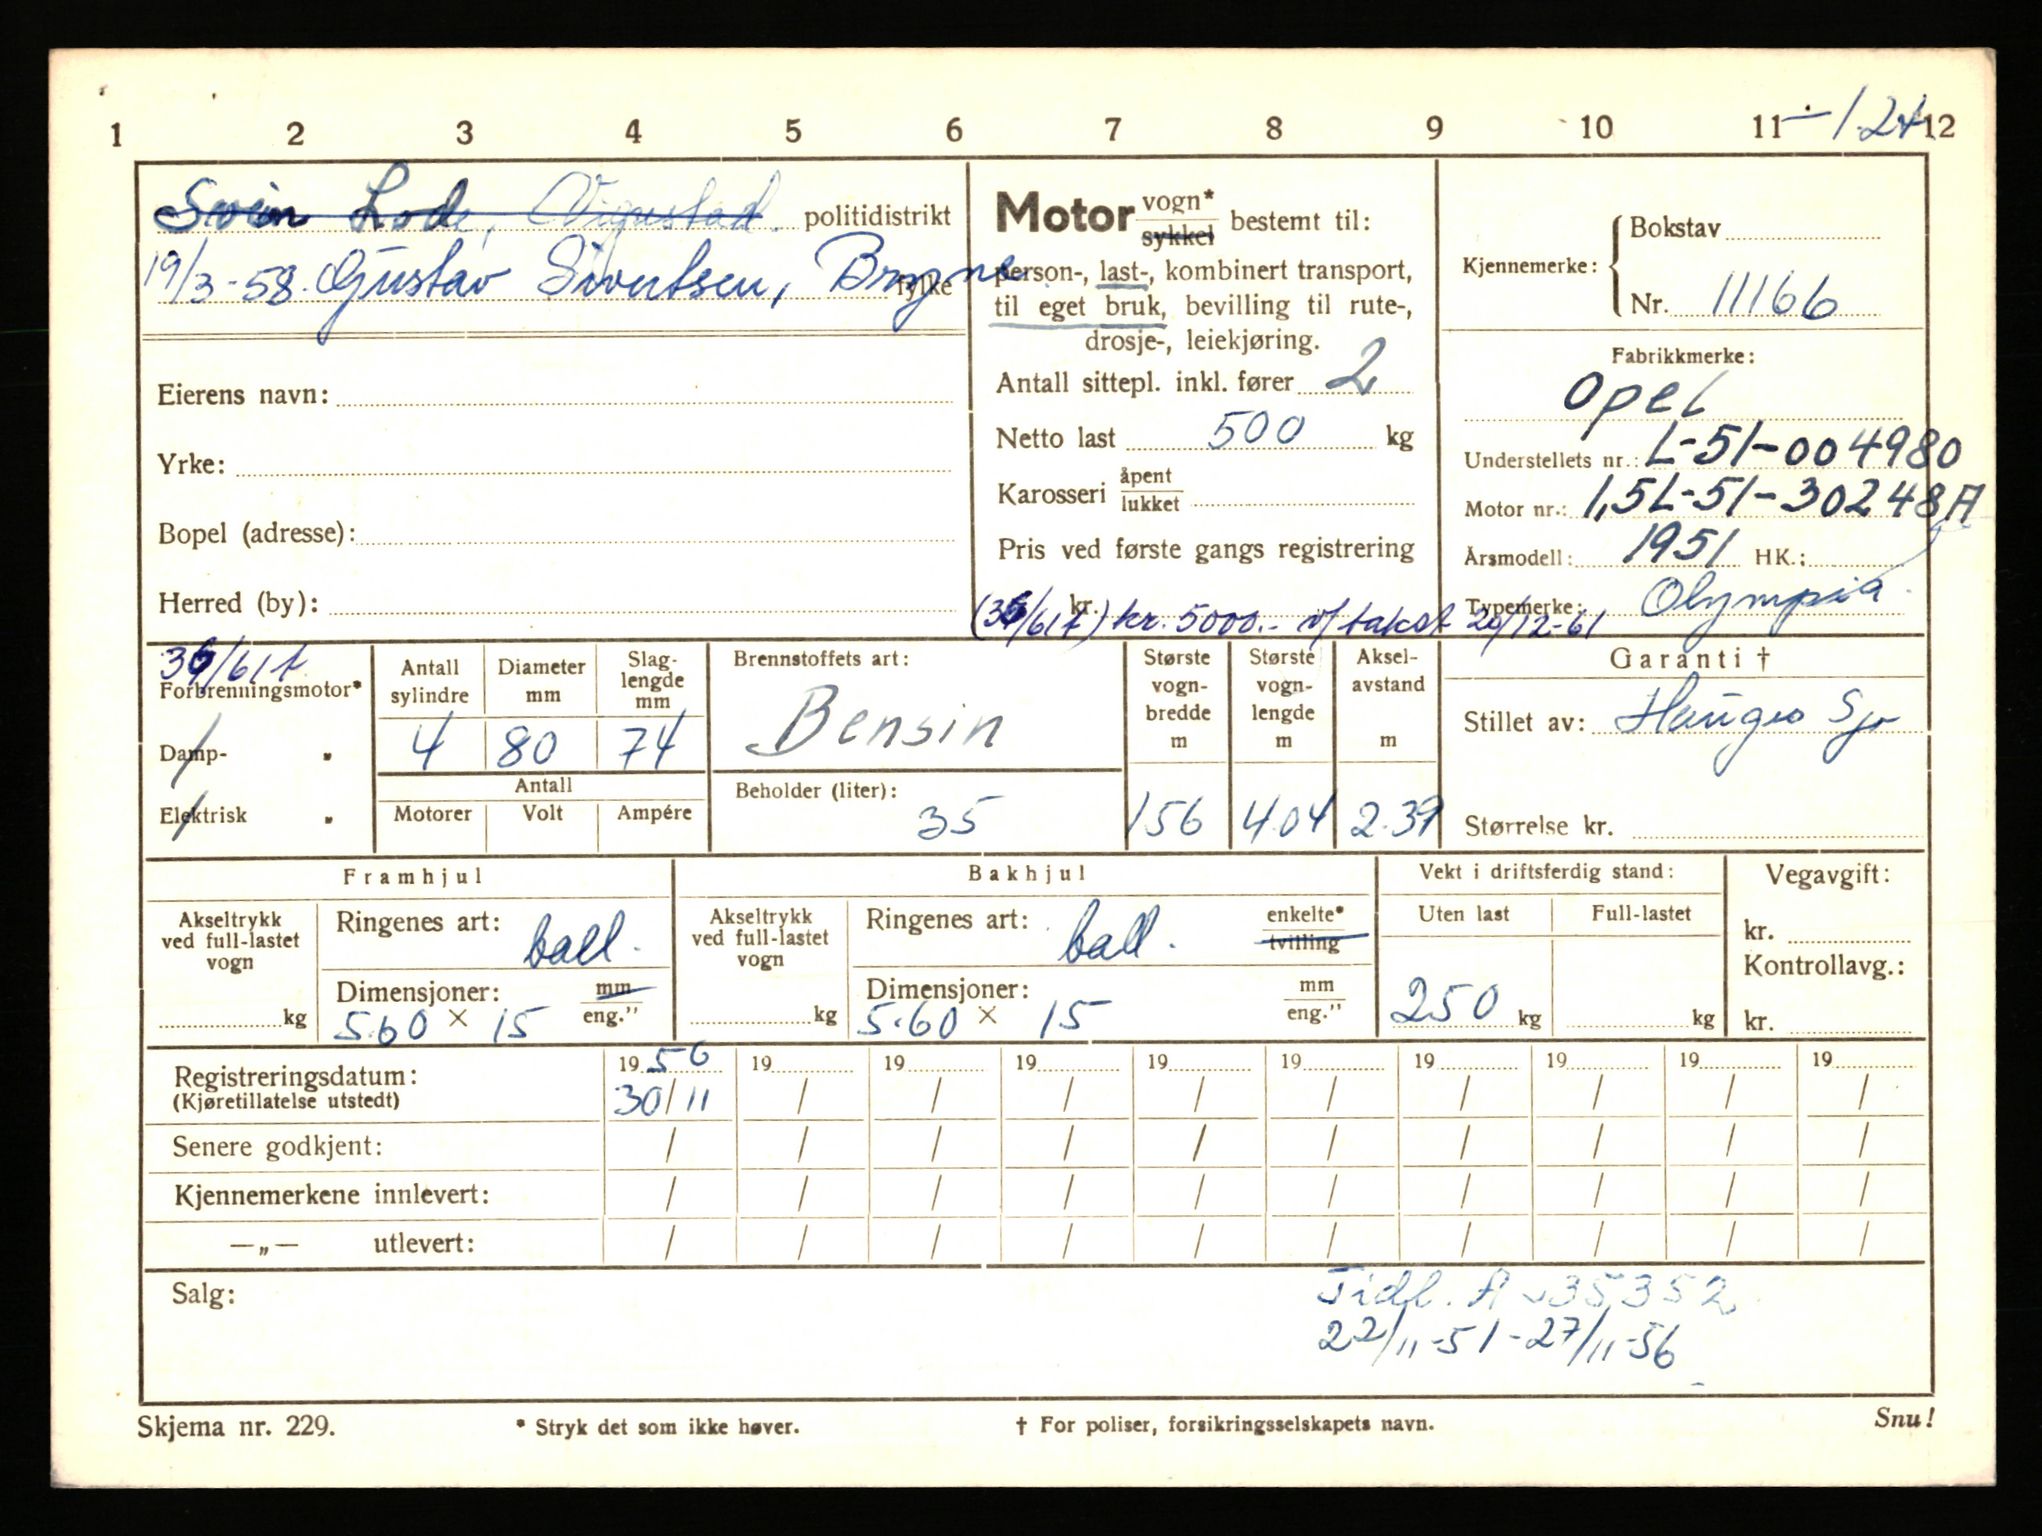 1 2 3 4 5 6 7 8 9 10 11 -124 12
Svein Lode, Vigrestad. politidistrikt
19/3-58. Gustav Sivertsen, Bryne fylke
Eierens navn:
Yrke:
Bopel (adresse):
Herred (by):
Motor vogn* sykkel bestemt til:
person-, last-, kombinert transport,
til eget bruk, bevilling til rute-,
drosje-, leiekjøring.
Antall sittepl. inkl. fører 2
Netto last 500 kg
Karosseri åpent lukket
Pris ved første gangs registrering
kr.
kr. 5000.- v/ takst 20/12-61
Kjennemerke: Bokstav
Nr. 11166
Fabrikkmerke:
Opel
Understellets nr.: L-51-004980
Motor nr.: 1,5L-51-30248A
Årsmodell: 1951 HK.:
Typemerke: Olympia
Forbrenningsmotor*
Damp- "
Elektrisk "
Antall sylindre 4
Diameter mm 80
Slag-lengde mm 74
Antall
Motorer Volt Ampére
Brennstoffets art:
Bensin
Beholder (liter):
35
Største vogn-bredde m 156
Største vogn-lengde m 4.04
Aksel-avstand m 2.39
Garanti †
Stillet av: Hauges Sj
Størrelse kr.
Framhjul
Akseltrykk ved full-lastet vogn
kg
Ringenes art: ball.
Dimensjoner: mm eng."
5.60 × 15
Bakhjul
Akseltrykk ved full-lastet vogn
kg
Ringenes art: ball. enkelte* tvilling
Dimensjoner: mm eng."
5.60 × 15
Vekt i driftsferdig stand:
Uten last Full-lastet
250 kg kg
Vegavgift:
kr.
Kontrollavg.:
kr.
Registreringsdatum: 19 56 19 19 19 19 19 19 19 19 19
(Kjøretillatelse utstedt) 30/11 / / / / / / / / /
Senere godkjent: / / / / / / / / / /
Kjennemerkene innlevert: / / / / / / / / / /
—„— utlevert: / / / / / / / / / /
Salg:
Tidl. A-35352
22/11-51-27/11-56
Skjema nr. 229. * Stryk det som ikke høver. † For poliser, forsikringsselskapets navn. Snu!